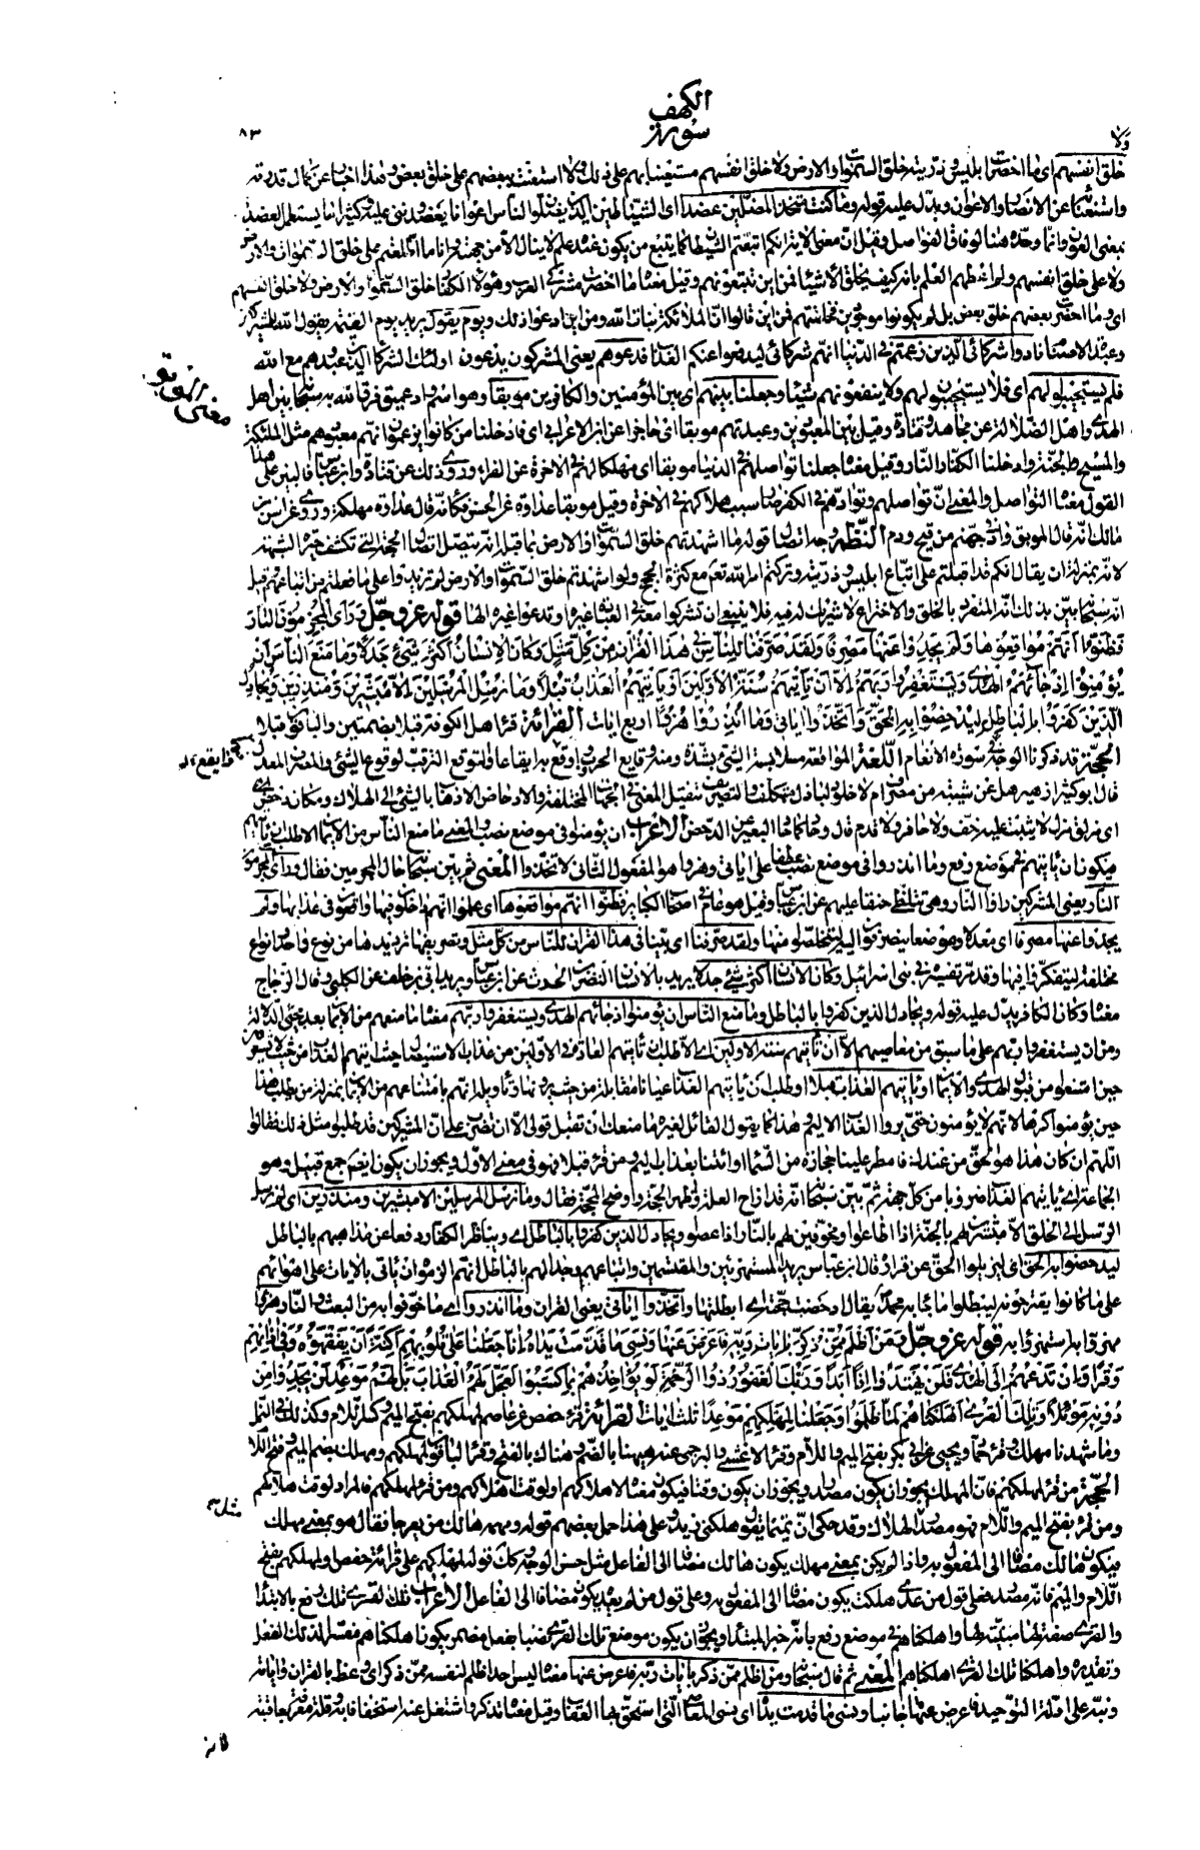 الكهف
سورة
٨٣
ولا
خلق انفسهم اى ما احضرت ابليس وذريته خلق السموات والارض ولا خلق انفسهم مستعينا بهم على ذلك ولا استعنت ببعضهم على خلق بعض وهذا اخبار عن كمال قدرته
واستغنائه عن الانصار والاعوان ويدل عليه قوله وما كنت متخذ المضلين عضدا اى الشياطين الذين يضلون الناس اعوانا يعضدوننى عليه وكثيرا ما يستعمل العضد
بمعنى العون وانما وحده هنا لوفاق الفواصل وقيل ان معنى الاية انكم اتبعتم الشيطان كما يتبع من يكون عنده علم لا ينال الا من جهته وانا ما اطلعتهم على خلق السموات والارض
ولا على خلق انفسهم ولم اعطهم العلم بانه كيف يخلق الاشياء فمن اين تتبعونهم وقيل معناه ما احضرت مشركى العرب وهؤلاء الكفار خلق السموات والارض ولا خلق انفسهم
اى وما احضرت بعضهم خلق بعض بل لم يكونوا موجودين فخلقتهم فمن اين قالوا ان الملائكة بنات الله ومن اين ادعوا ذلك ويوم يقول يريد يوم القيمة يقول الله للمشركين
وعبدة الاصنام نادوا شركائى الذين زعمتم فى الدنيا انهم شركائى ليدفعوا عنكم العذاب فدعوهم يعنى المشركون يدعون اولئك الشركاء الذين عبدوهم مع الله
فلم يستجيبوا لهم اى فلا يستجيبون لهم ولا ينفعونهم شيئا وجعلنا بينهم اى بين المؤمنين والكافرين موبقا وهو اسم واد عميق فرق الله به سبحانه بين اهل
معنى الموبق
الهدى واهل الضلالة عن مجاهد وقتادة وقيل بين المعبودين وعبدتهم موبقا اى حاجزا عن ابن الاعرابى اى فادخلنا من كانوا يزعمون انهم معبودهم مثل الملئكة
والمسيح الجنة وادخلنا الكفار النار وقيل معناه جعلنا تواصلهم فى الدنيا موبقا اى مهلكا لهم فى الاخرة عن الفراء وروى ذلك عن قتادة وابن عباس فالبين على هذا
القول معناه التواصل والمعنى ان تواصلهم وتوادهم فى الكفر صار سبب هلاكهم فى الاخرة وقيل موبقا عداوة عن الحسن فكانه قال عداوة مهلكة وروى عن انس بن
مالك انه قال الموبق واد فى جهنم من قيح ودم النظم وجه اتصال قوله ما اشهدتهم خلق السموات والارض بما قبله انه يتصل اتصال الحجة التى تكشف حيرة الشبهة
لانه بمنزلة ان يقال انكم قد اقبلتم على اتباع ابليس وذريته وتركتم امر الله تعالى مع كثرة الحجج ولو اشهدتم خلق السموات والارض لم تزيدوا على ما فعلتم من اتباعهم قبل
انه سبحانه بين بذلك انه المنفرد بالخلق والاختراع لا شريك له فيه فلا ينبغى ان تشركوا معه فى العبادة غيره وتدعوا غيره الها قوله عز وجل وَرَاَى الْمُجْرِمُونَ النَّارَ
فَظَنُّوا اَنَّهُمْ مُوَاقِعُوهَا وَلَمْ يَجِدُوا عَنْهَا مَصْرِفًا وَلَقَدْ صَرَّفْنَا لِلنَّاسِ فِى هٰذَا الْقُرْاٰنِ مِنْ كُلِّ مَثَلٍ وَكَانَ الْاِنْسَانُ اَكْثَرَ شَىْءٍ جَدَلًا وَمَا مَنَعَ النَّاسَ اَنْ
يُؤْمِنُوا اِذْ جَاءَهُمُ الْهُدٰى وَيَسْتَغْفِرُوا رَبَّهُمْ اِلَّا اَنْ تَأْتِيَهُمْ سُنَّةُ الْاَوَّلِينَ اَوْ يَأْتِيَهُمُ الْعَذَابُ قُبُلًا وَمَا نُرْسِلُ الْمُرْسَلِينَ اِلَّا مُبَشِّرِينَ وَمُنْذِرِينَ وَيُجَادِلُ
الَّذِينَ كَفَرُوا بِالْبَاطِلِ لِيُدْحِضُوا بِهِ الْحَقَّ وَاتَّخَذُوا اٰيَاتِى وَمَا اُنْذِرُوا هُزُوًا اربع ايات القرائة قرأ اهل الكوفة قبلا بضمتين والباقون قبلا
الحجة قد ذكرنا الوجه فى سورة الانعام اللغة المواقعة ملابسة الشىء بشدة ومنه وقايع الحروب واوقع به ايقاعا والتوقع الترقب لوقوع الشىء والمصرف المعدل
قال ابو كبير ازهير هل عن شيبة من مصرف ام لا خلود لباذل متكلف والتصريف تنقيل المعنى فى الجهات المختلفة والادحاض الاذهاب بالشىء الى الهلاك ومكان دحض
اى مزلق مزل لا يثبت عليه خف ولا حافر ولا قدم قال وحاد كما حاد البعير عن الدحض الاعراب ان يؤمنوا فى موضع نصب والمعنى ما منع الناس من الايمان الا طلب ان ياتيهم
فيكون ان ياتيهم فى موضع رفع وما انذروا فى موضع نصب عطفا على اياتى وهزوا هو المفعول الثانى لاتخذوا المعنى ثم بين سبحانه حال المجرمين فقال وراى المجرمون
النار يعنى المشركين راوا النار وهى تتلظى حنقا عليهم عن ابن عباس وقيل هو عام فى اصحاب الكبائر فظنوا انهم مواقعوها اى علموا انهم داخلون فيها واقعون فى عذابها ولم
يجدوا عنها مصرفا اى معدلا وموضعا ينصرفون اليه ليتخلصوا منها ولقد صرفنا اى بينا فى هذا القران للناس من كل مثل وتصريفها ترديدها من نوع واحد وانواع
مختلفة ليتفكروا فيها وقد مر تفسيره فى بنى اسرائيل وكان الانسان اكثر شىء جدلا يريد بالانسان النضر بن الحرث عن ابن عباس ويريد ابى بن خلف عن الكلبى وقال الزجاج
معناه وكان الكافر يدل عليه قوله ويجادل الذين كفروا بالباطل وما منع الناس ان يؤمنوا اذ جاءهم الهدى ويستغفروا ربهم معناه ما منعهم من الايمان بعد مجىء الدلالة
ومن ان يستغفروا ربهم على ما سبق من معاصيهم الا ان تاتيهم سنة الاولين اى الا طلب ان تاتيهم العادة فى الاولين من عذاب الاستيصال حيث اتيهم العذاب من حيث لا يشعرون
حين امتنعوا من قبول الهدى والايمان او ياتيهم العذاب قبلا او طلب ان ياتيهم العذاب عيانا مقابلة من حيث يرونها وتاويله انهم بامتناعهم من الايمان بمنزلة من يطلب هذا
حين يؤمنوا كرها لانهم لا يؤمنون حتى يروا العذاب الاليم وهذا كما يقول القائل لغيره ما منعك ان تقبل قولى الا ان تضرب على ان المشركين قد طلبوا مثل ذلك فقالوا
اللهم ان كان هذا هو الحق من عندك فامطر علينا حجارة من السماء او ائتنا بعذاب اليم ومن قرء قبلا فهو فى معنى الاول ويجوز ان يكون ايضا جمع قبيل وهو
الجماعة اى ياتيهم العذاب ضروبا من كل جهة ثم بين سبحانه انه قد ازاح العلة واظهر الحجة واوضح المحجة فقال وما نرسل المرسلين الا مبشرين ومنذرين اى لم نرسل
الرسل الى الخلق الا مبشرين لهم بالجنة اذا اطاعوا ومخوفين لهم بالنار اذا عصوا ويجادل الذين كفروا بالباطل اى ويناظر الكفار دفعا عن مذاهبهم بالباطل
ليدحضوا به الحق اى ليزيلوا الحق عن قراره قال ابن عباس يريد المستهزئين والمقتسمين واتباعهم وجدالهم بالباطل انهم الزموه ان ياتى بالايات على اهوائهم
على ما كانوا يقترحونه ليبطلوا ما جاء به محمد يقال ادحضت حجته اى ابطلتها واتخذوا اياتى يعنى القران وما انذروا اى ما خوفوا به من البعث والنار هزوا
مهزوا به استهزؤا به قوله عز وجل وَمَنْ اَظْلَمُ مِمَّنْ ذُكِّرَ بِاٰيَاتِ رَبِّهِ فَاَعْرَضَ عَنْهَا وَنَسِىَ مَا قَدَّمَتْ يَدَاهُ اِنَّا جَعَلْنَا عَلٰى قُلُوبِهِمْ اَكِنَّةً اَنْ يَفْقَهُوهُ وَفِى اٰذَانِهِمْ
وَقْرًا وَاِنْ تَدْعُهُمْ اِلَى الْهُدٰى فَلَنْ يَهْتَدُوا اِذًا اَبَدًا وَرَبُّكَ الْغَفُورُ ذُو الرَّحْمَةِ لَوْ يُؤَاخِذُهُمْ بِمَا كَسَبُوا لَعَجَّلَ لَهُمُ الْعَذَابَ بَلْ لَهُمْ مَوْعِدٌ لَنْ يَجِدُوا مِنْ
دُونِهِ مَوْئِلًا وَتِلْكَ الْقُرٰى اَهْلَكْنَاهُمْ لَمَّا ظَلَمُوا وَجَعَلْنَا لِمَهْلِكِهِمْ مَوْعِدًا ثلث ايات القرائة قرء حفص عن عاصم لمهلكهم بفتح الميم وكسر اللام وكذلك فى النمل
وما شهدنا مهلك وقرء حماد ويحيى عن ابى بكر بفتح الميم واللام وقرء الاعشى والبرجمى عنه ههنا بالضم وهناك بالفتح وقرء الباقون لمهلكهم ومهلك بضم الميم وفتح اللام
الحجة من قرء لمهلكهم فان المهلك يجوز ان يكون مصدرا ويجوز ان يكون وقتا فيكون معناه لاهلاكهم او لوقت اهلاكهم ومن قرء لمهلكهم فالمراد لوقت هلاكهم
ومن قرء بفتح الميم واللام فهو مصدر مثل الهلاك وقد حكى ان تميما يقول هلكنى زيد وعلى هذا حمل بعضهم قوله ومهمه هالك من تعرجا فقال هو بمعنى مهلك
فيكون هالك مضافا الى المفعول به واذا لم يكن بمعنى مهلك يكون هالك مضافا الى الفاعل مثل حسن الوجه وكذلك قوله لمهلكهم على قرائة حفص ولمهلكهم بفتح
اللام والميم فانه مصدر فعلى قول من عدى هلكت يكون مضافا الى المفعول به وعلى قول من لم يعده يكون مضافا الى الفاعل الاعراب تلك القرى تلك رفع بالابتداء
والقرى صفة لها مبينة لها واهلكناهم فى موضع رفع بانه خبر المبتدا ويجوز ان يكون موضع تلك القرى نصبا بفعل مضمر يكون اهلكناهم مفسرا لذلك الفعل
وتقديره واهلكنا تلك القرى اهلكناهم المعنى ثم قال سبحانه ومن اظلم ممن ذكر بايات ربه فاعرض عنها معناه ليس احد اظلم لنفسه ممن ذكر اى وعظ بالقران واياته
ونبه على ادلة التوحيد فاعرض عنها جانبا ونسى ما قدمت يداه اى نسى المعاصى التى استحق بها العقاب وقيل معناه تذكر واشتغل عنه استخفافا به وقلة معرفة بعاقبته